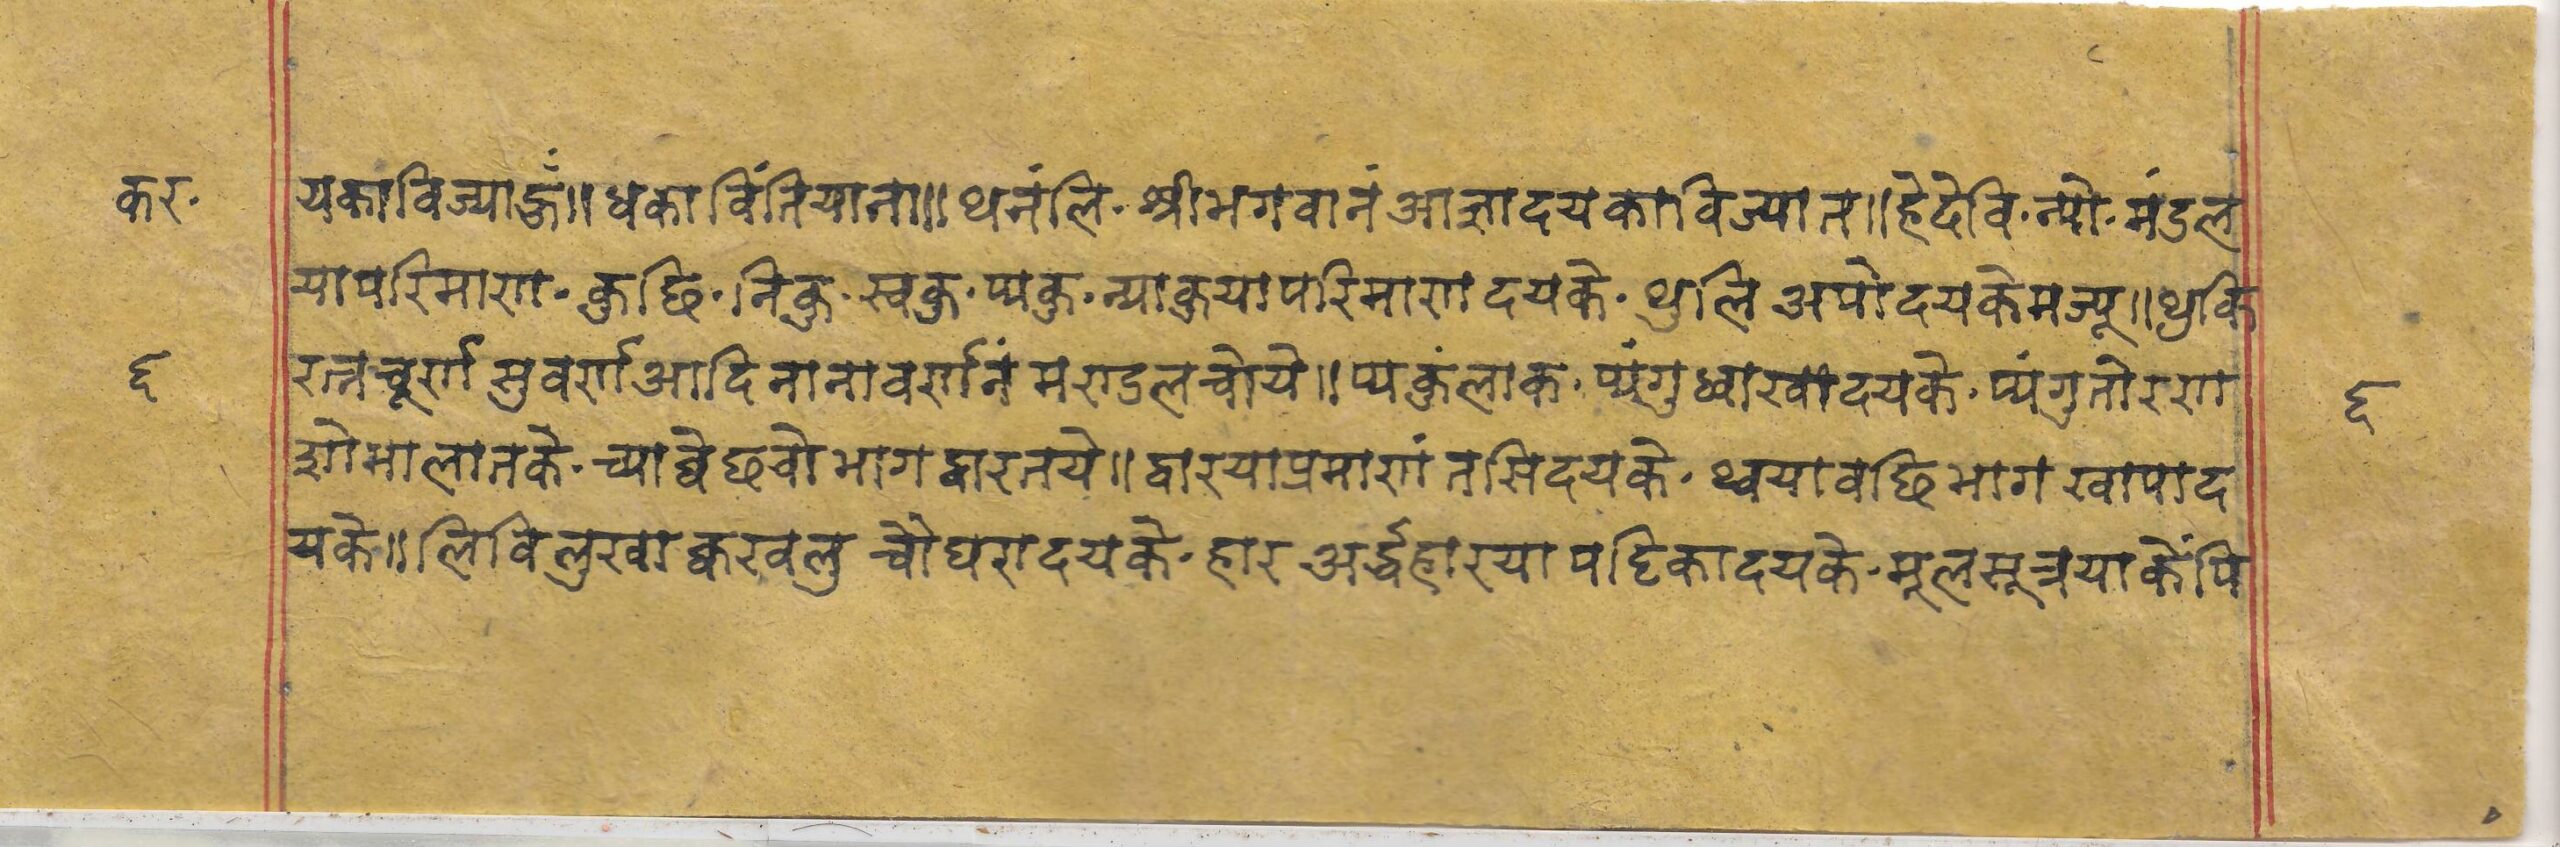 कर·
यकाविज्याहुँ॥धका विंतियाना॥ थनंलि· श्रीभगवानं आज्ञादयकाविज्यात॥हेदेवि·न्यो·मंडल
यापरिमाण·कुछि·निकु·स्वकु·प्यकु·न्याकुयापरिमाणदयके·थुलि अपो दयकेमज्यू॥थुकि
६
रत्नचूर्ण सुवर्ण आदि नानावर्णनं मण्डलचोये॥प्यकुंलाक·प्यंगुध्वाखादयके·प्यंगुतोरण
६
शोभालातके·च्याब्वेछबोभागद्वारतये॥द्वारयाप्रमाणं तसिदयके·थ्वयावछिभाग खापाद
यके॥लिविलुखा क्वखलु चौघरादयके·हार अर्द्धहारया पट्टिकादयके·मूलसूत्रयाकेंपि